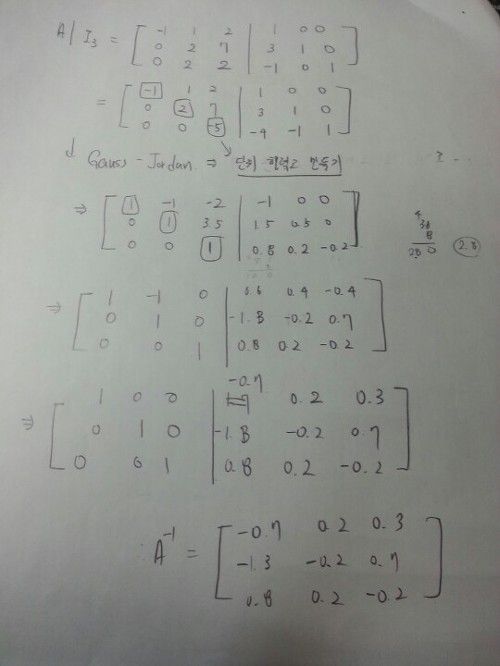 A | I₃ = [ -1 1 2 | 1 0 0
0 2 7 | 3 1 0
0 2 2 | -1 0 1 ]
= [ -1 1 2 | 1 0 0
0 2 7 | 3 1 0
0 0 -5 | -4 -1 1 ]
↓ Gauss - Jordan ⇒ 단위 행렬로 만들기
⇒ [ 1 -1 -2 | -1 0 0
0 1 3.5 | 1.5 0.5 0
0 0 1 | 0.8 0.2 -0.2 ]
2.8
⇒ [ 1 -1 0 | 0.6 0.4 -0.4
0 1 0 | -1.3 -0.2 0.7
0 0 1 | 0.8 0.2 -0.2 ]
⇒ [ 1 0 0 | -0.7 0.2 0.3
0 1 0 | -1.3 -0.2 0.7
0 0 1 | 0.8 0.2 -0.2 ]
∴ A⁻¹ = [ -0.7 0.2 0.3
-1.3 -0.2 0.7
0.8 0.2 -0.2 ]